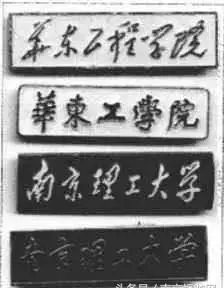 华东工程学院
華東工學院
南京理工大学
南京理工大學